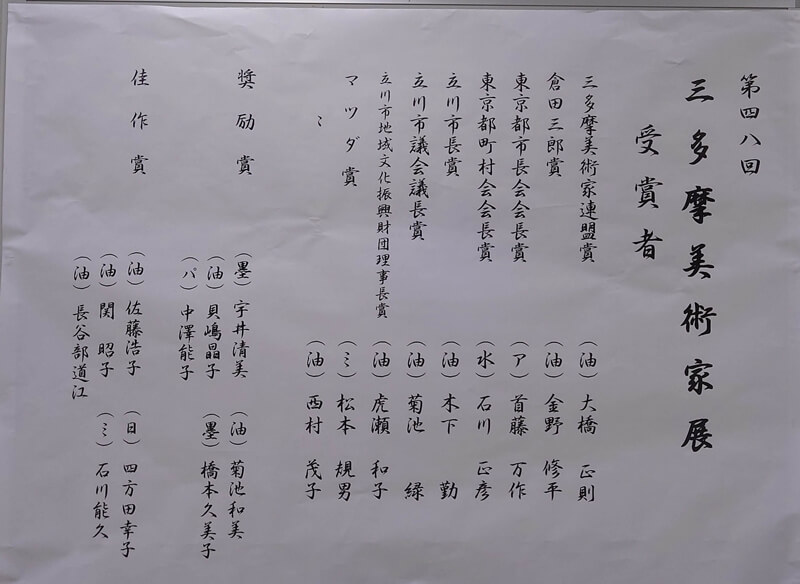 第四八回
三多摩美術家展
受賞者
三多摩美術家連盟賞 （油）大橋 正則
倉田三郎賞 （油）金野 修平
東京都市長会会長賞 （ア）首藤 万作
東京都町村会会長賞 （水）石川 正彦
立川市長賞 （油）木下 勤
立川市議会議長賞 （油）菊池 緑
立川市地域文化振興財団理事長賞 （油）虎瀬 和子
マツダ賞 （ミ）松本 規男
〃 （油）西村 茂子
奨励賞 （墨）宇井清美 （油）菊池和美
（油）貝嶋晶子 （墨）橋本久美子
（パ）中澤能子
佳作賞 （油）佐藤浩子 （日）四方田幸子
（油）関 昭子 （ミ）石川能久
（油）長谷部道江